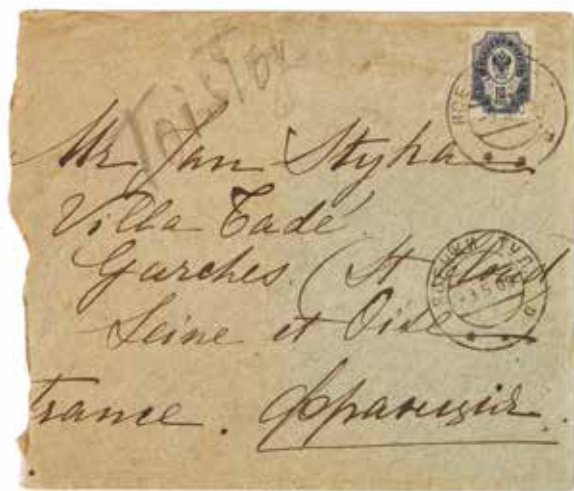 Tolstoy
Mr Jan Styka
Villa Tadé
Garches (St Cloud
Seine et Oise
France. Франція.